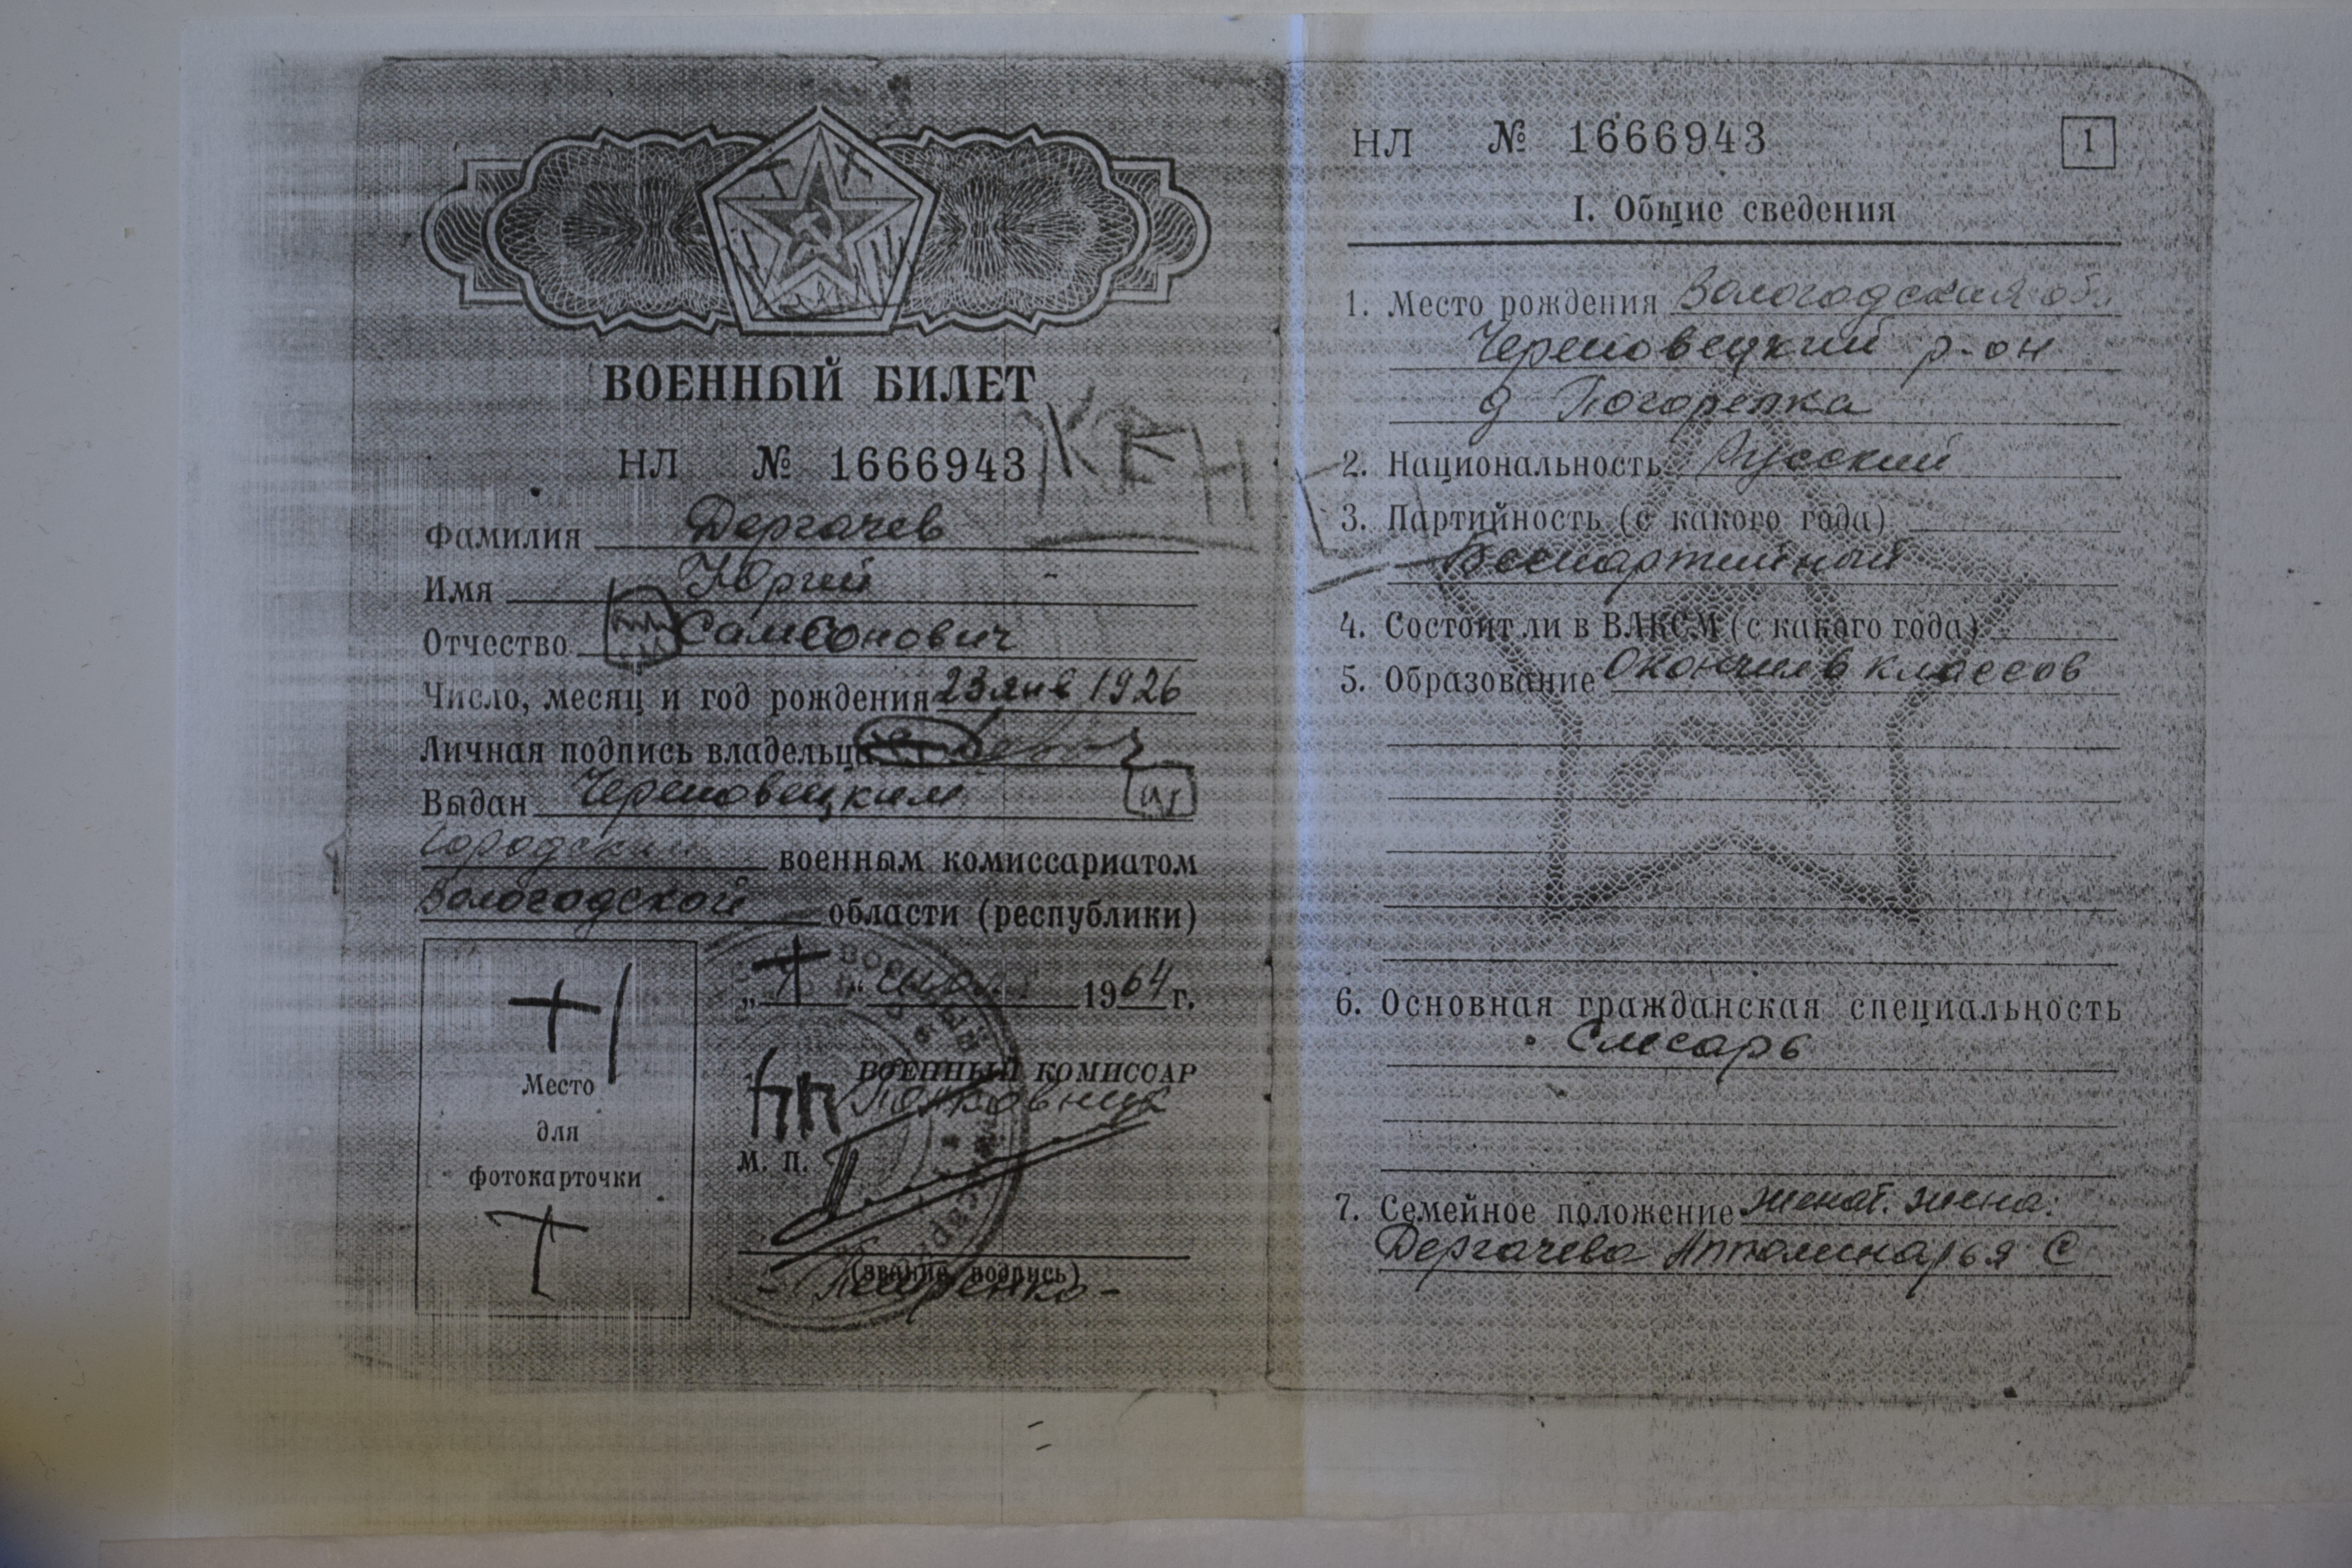 ВОЕННЫЙ БИЛЕТ
НЛ № 1666943
Фамилия Дергачев
Имя Юрий
Отчество Самсонович
Число, месяц и год рождения 23 янв 1926
Личная подпись владельца
Выдан Череповецким
Городским военным комиссариатом
Вологодской области (республики)
1964 г.
ВОЕННЫЙ КОМИССАР
Полковник
Место
для
фотокарточки
М. П.
(звание, подпись)
НЛ № 1666943
1
I. Общие сведения
1. Место рождения Вологодская обл
Череповецкий р-он
д Погорелка
2. Национальность Русский
3. Партийность (с какого года)
Беспартийный
4. Состоит ли в ВЛКСМ (с какого года)
5. Образование Окончил 6 классов
6. Основная гражданская специальность
Слесарь
7. Семейное положение женат. жена:
Дергачева Апполинарья С